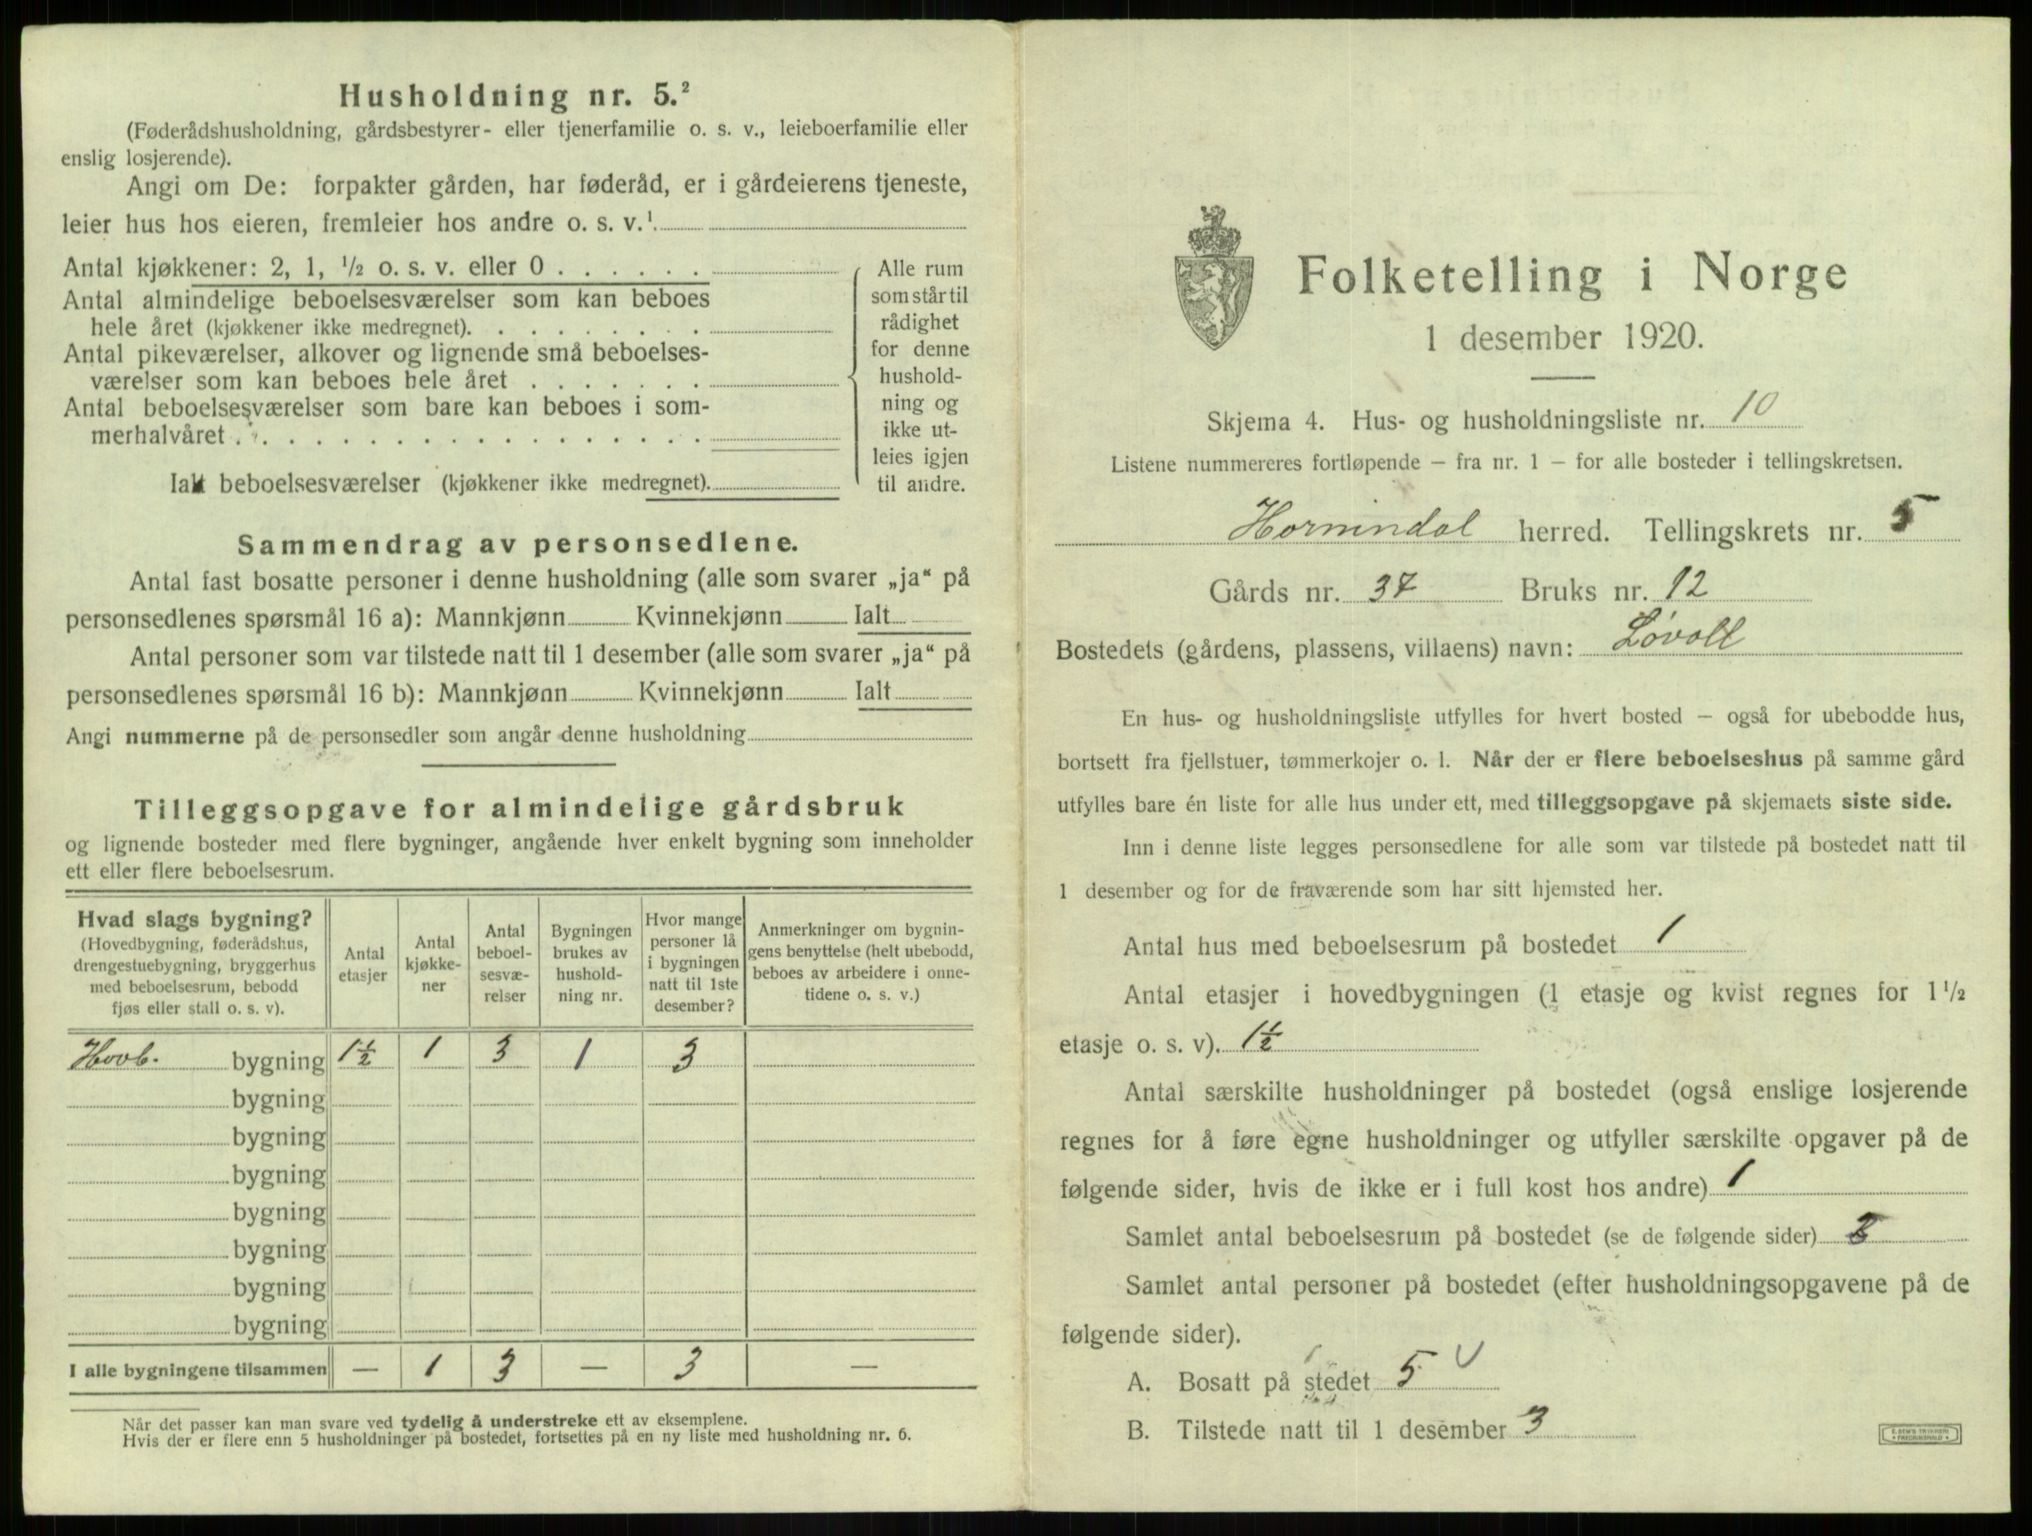 Husholdning nr. 5.²
(Føderådshusholdning, gårdsbestyrer- eller tjenerfamilie o. s. v., leieboerfamilie eller
enslig losjerende).
Angi om De: forpakter gården, har føderåd, er i gårdeierens tjeneste,
leier hus hos eieren, fremleier hos andre o. s. v.¹
Antal kjøkkener: 2, 1, ½ o. s. v. eller 0 . . . . . .
Antal almindelige beboelsesværelser som kan beboes
hele året (kjøkkener ikke medregnet). . . . . . . . .
Antal pikeværelser, alkover og lignende små beboelses-
værelser som kan beboes hele året . . . . . . .
Antal beboelsesværelser som bare kan beboes i som-
merhalvåret . . . . . . . . . . . . . . . . . .
Ialt beboelsesværelser (kjøkkener ikke medregnet).
Alle rum
som står til
rådighet
for denne
hushold-
ning og
ikke ut-
leies igjen
til andre.
Sammendrag av personsedlene.
Antal fast bosatte personer i denne husholdning (alle som svarer „ja“ på
personsedlenes spørsmål 16 a): Mannkjønn Kvinnekjønn Ialt
Antal personer som var tilstede natt til 1 desember (alle som svarer „ja“ på
personsedlenes spørsmål 16 b): Mannkjønn Kvinnekjønn Ialt
Angi nummerne på de personsedler som angår denne husholdning
Tilleggsopgave for almindelige gårdsbruk
og lignende bosteder med flere bygninger, angående hver enkelt bygning som inneholder
ett eller flere beboelsesrum.
Hvad slags bygning?
(Hovedbygning, føderådshus,
drengestuebygning, bryggerhus
med beboelsesrum, bebodd
fjøs eller stall o. s. v).
Antal
etasjer
Antal
kjøkke-
ner
Antal
beboel-
sesvæ-
relser
Bygningen
brukes av
hushold-
ning nr.
Hvor mange
personer lå
i bygningen
natt til 1ste
desember?
Anmerkninger om bygnin-
gens benyttelse (helt ubebodd,
beboes av arbeidere i onne-
tidene o. s. v.)
Hovb. bygning 1½ 1 3 1 3
bygning
bygning
bygning
bygning
bygning
bygning
bygning
I alle bygningene tilsammen — 1 3 — 3 —
Når det passer kan man svare ved tydelig å understreke ett av eksemplene.
Hvis der er flere enn 5 husholdninger på bostedet, fortsettes på en ny liste med husholdning nr. 6.
Folketelling i Norge
1 desember 1920.
Skjema 4. Hus- og husholdningsliste nr. 10
Listene nummereres fortløpende – fra nr. 1 – for alle bosteder i tellingskretsen.
Hornindal herred. Tellingskrets nr. 5
Gårds nr. 37 Bruks nr. 12
Bostedets (gårdens, plassens, villaens) navn: Løvoll
En hus- og husholdningsliste utfylles for hvert bosted – også for ubebodde hus,
bortsett fra fjellstuer, tømmerkojer o. l. Når der er flere beboelseshus på samme gård
utfylles bare én liste for alle hus under ett, med tilleggsopgave på skjemaets siste side.
Inn i denne liste legges personsedlene for alle som var tilstede på bostedet natt til
1 desember og for de fraværende som har sitt hjemsted her.
Antal hus med beboelsesrum på bostedet 1
Antal etasjer i hovedbygningen (1 etasje og kvist regnes for 1½
etasje o. s. v). 1½
Antal særskilte husholdninger på bostedet (også enslige losjerende
regnes for å føre egne husholdninger og utfyller særskilte opgaver på de
følgende sider, hvis de ikke er i full kost hos andre) 1
Samlet antal beboelsesrum på bostedet (se de følgende sider)
Samlet antal personer på bostedet (efter husholdningsopgavene på de
følgende sider).
A. Bosatt på stedet 5
B. Tilstede natt til 1 desember 3